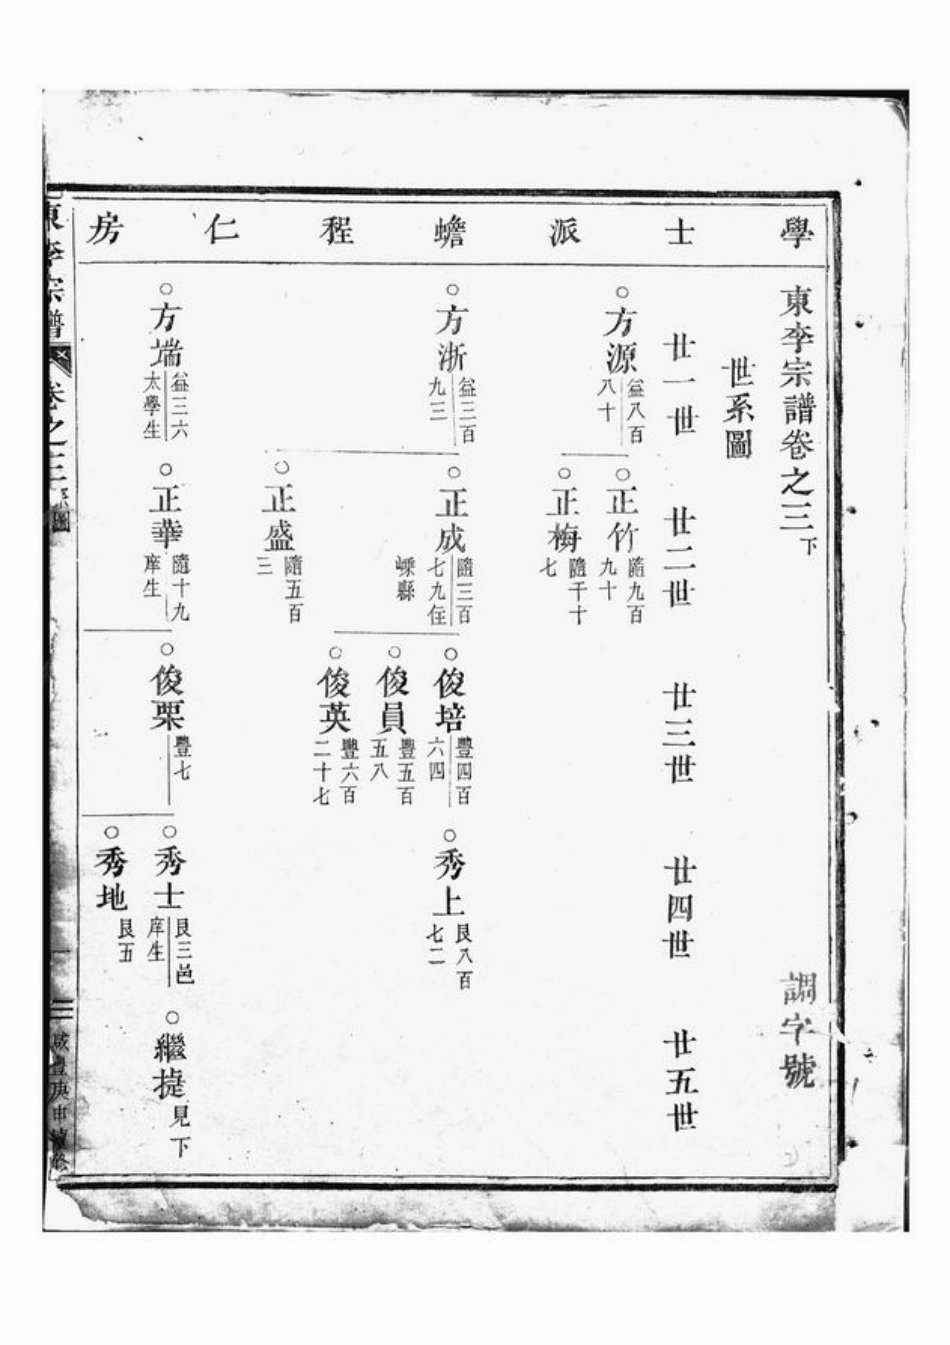 學士派蟾程仁房
東李宗譜卷之三下
調字號
世系圖
廿一世
廿二世
廿三世
廿四世
廿五世
方源
益八百
八十
正竹
隨九百
九十
正梅
隨千十
七
方浙
益三百
九三
正成
隨三百
七九住
嵊縣
俊培
豐四百
六四
秀上
艮八百
七二
俊員
豐五百
五八
俊英
豐六百
二十七
正盛
隨五百
三
方端
益三六
太學生
正華
隨十九
庠生
俊栗
豐七
秀士
艮三邑
庠生
繼捷見下
秀地
艮五
東李宗譜
卷之三
系圖
一
咸豐庚申續修